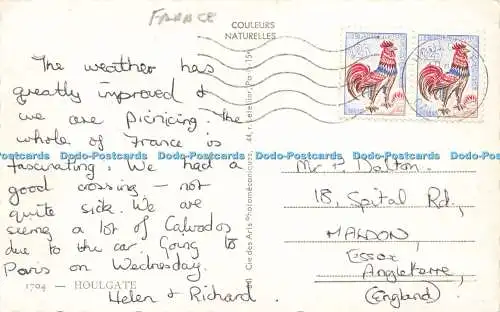 FRANCE
COULEURS
NATURELLES
The weather has
greatly improved &
we are picnicing. The
whole of France is
fascinating. We had a
good crossing – not
quite sick. We are
seeing a lot of Calvados
due to the car. Going to
Paris on Wednesday.
Helen & Richard.
1704 - HOULGATE
Cie des Arts Photomécaniques, 44, r. Letellier, Paris 15e
Mr F. Dalton.
18, Spital Rd.,
MALDON,
Essex
Angleterre,
(England).
Dodo-Postcards Dodo-Postcards Dodo-Postcards Dodo-Postcards Dodo-Postcards